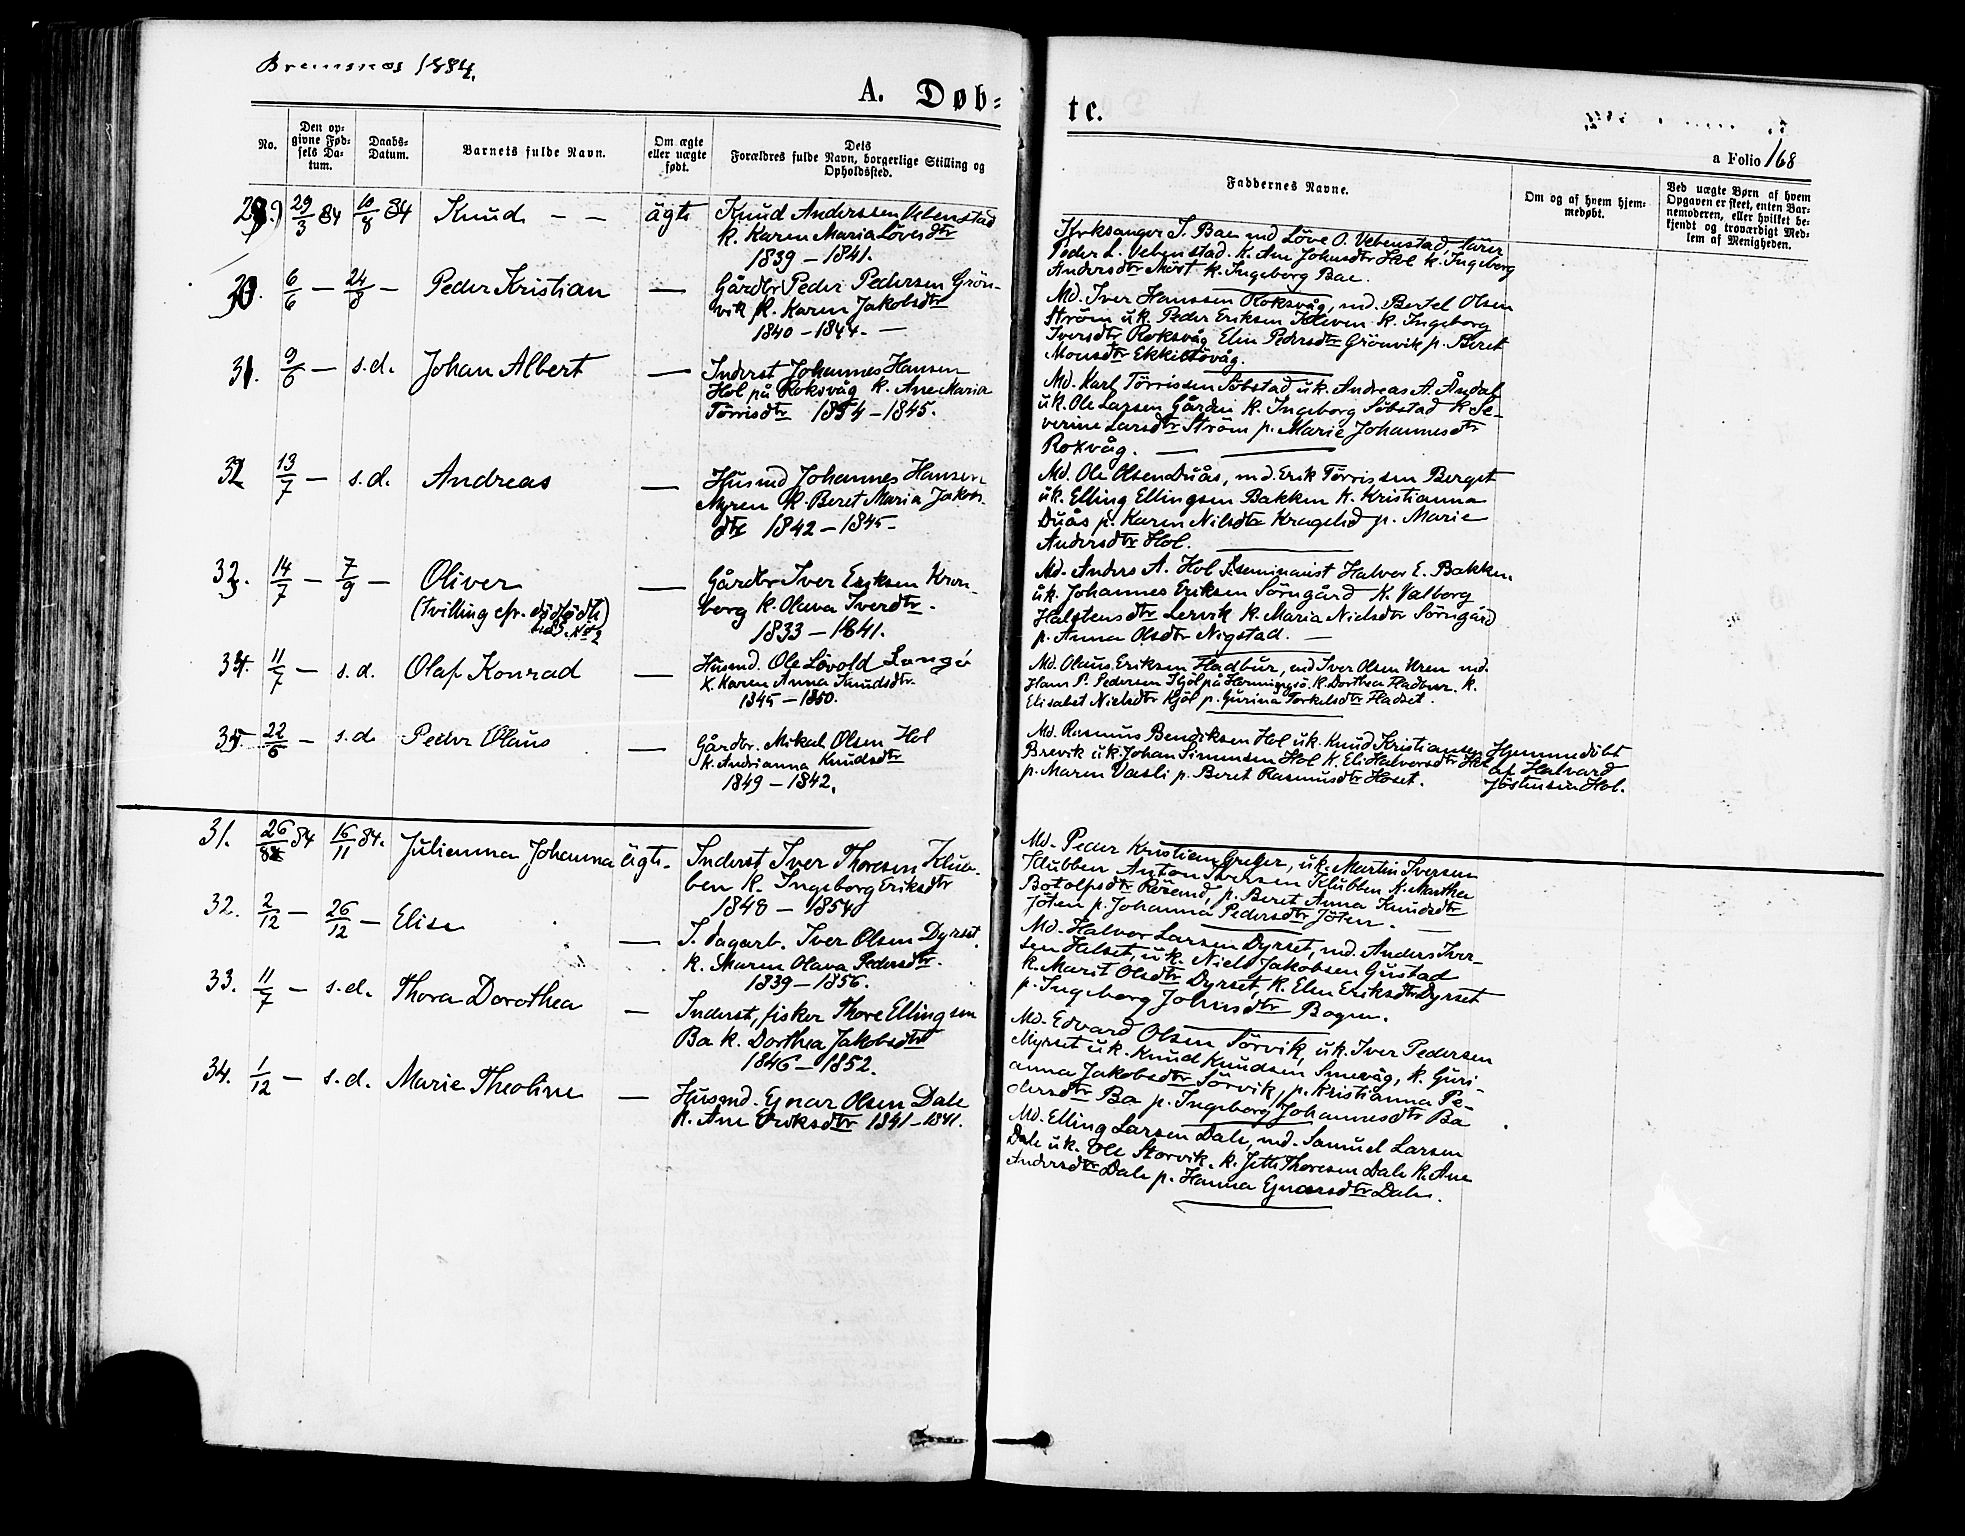 Bremsnes 1884.
A. Døb-
te.
a Folio 168
No.
Den op-
givne Fød-
sels Da-
tum.
Daabs-
Datum.
Barnets fulde Navn.
Om ægte
eller uægte
født.
Dets
Forældres fulde Navn, borgerlige Stilling og
Opholdssted.
Faddernes Navne.
Om og af hvem hjem-
medøbt.
Ved uægte Børn af hvem
Opgaven er skeet, enten Bar-
nemoderen, eller hvilket be-
kjendt og troværdigt Med-
lem af Menigheden.
29/3 84 10/8 84 Knud — — ägte Knud Anderssen Vebenstad
k. Karen Maria Løvesdtr
1839 — 1841.
Kirksanger J. Bae md Löve O. Vebenstad, lärer
Peder L. Vebenstad. K. Ane Johnsdtr Hol k. Ingeborg
Andersdtr Mört k. Ingeborg Bae.
30. 6/6 — 24/8 — Peder Kristian — Gårdbr Peder Pedersen Grön-
vik k. Karen Jakobsdtr
1840 — 1844. —
Md. Iver Hanssen Roksvåg, md. Bertel Olsen
Ström uk. Peder Eriksen Kleven k. Ingeborg
Iversdtr Roksvåg Elin Pedersdtr Grönvik p. Beret
Monsdtr Ekkilsövåg.
31. 9/6 — s.d. Johan Albert — Inderst Johannes Hansen
Hol på Roksvåg k. Ane Maria
Törrisdtr 1854 — 1845.
Md. Karl Törrissen Söbstad uk. Andreas A. Åndal
uk. Ole Larsen Gården k. Ingeborg Söbstad k. Se-
verine Larsdtr Ström p. Marie Johannesdtr
Roxvåg. —
32 13/7 — s.d. Andreas — Husmd Johannes Hansen
Myren k. Beret Maria Jakobs-
dtr 1842 — 1845 —
Md. Ole Olsen Duås, md. Erik Törrissen Berget
uk. Elling Ellingsen Bakken k. Kristianna
Duås p. Karen Nilsdtr Kragelid p. Marie
Andersdtr Hol.
33. 14/7 — 7/9 — Oliver — Gårdbr Iver Eriksen Kron-
borg k. Olava Iversdtr.
(tvilling cfr. dödfödte
No 2
1833 — 1841.
Md. Anders A. Hol seminarist Halvor E. Bakken
uk. Johannes Eriksen Sörngård k. Valborg
Halstensdtr Lervik k. Maria Nielsdtr Sörngård
p. Anna Olsdtr Nigstad. —
34. 11/7 — s.d. Olaf Konrad — Husmd. Ole Lövold Langö
k. Karen Anna Knudsdtr.
1845 — 1850.
Md. Olaus Eriksen Fladbur, md Iver Olsen Uren md.
Hans P. Pedersen Kjöl på Henningsö. k. Dorthea Fladbur. k.
Elisabet Nielsdtr Kjöl p. Gurina Torkelsdtr Fladset.
35. 22/6 — s.d. Peder Olaus — Gårdbr. Mikal Olsen Hol
k. Andrianna Knudsdtr
1849 — 1842.
Md. Rasmus Bendiksen Hol uk. Knud Kristiansen
Brevik uk. Johan Simensen Hol k. Eli Halversdtr Hol
p. Maren Vasli p. Beret Rasmusdtr Höset.
Hjemmedöbt
af Halvard
Jöstensen Hol.
31. 26/8 84 16/11 84. Julianna Johanna ägte. Inderst Iver Thoresen Klub-
ben k. Ingeborg Eriksdtr
1848 — 1854
Md. Peder Kristian Greger, uk. Martin Iversen
Klubben Anton Iversen Klubben k. Marthea
Botolfsdtr Rösand, p. Beret Anna Knudsdtr
Jöten p. Johanna Pedersdtr Jöten. —
32. 2/12 — 26/12 — Elise — J. dagarb. Iver Olsen Dyrset.
k. Maren Olava Pedersdtr.
1839 — 1856.
Md. Halvor Larsen Dyrset, md. Anders Iver-
sen Halset, uk. Niels Jakobsen Gustad
k. Marit Olsdtr Dyrset, k. Elen Eriksdtr Dyrset
p. Ingeborg Johnsdtr Bogen.
33. 11/7 — s.d. Thora Dorothea — Inderst, fisker Thore Ellingsen
Ba k. Dorthea Jakobsdtr
1846 — 1852.
Md. Edvard Olsen Sörvik, uk. Iver Pedersen
Myrset uk. Knud Knudsen Smevåg, k. Guri-
anna Jakobsdtr Sörvik, p. Kristianna Pe-
dersdtr Ba p. Ingeborg Johannesdtr Ba
34. 1/12 — s.d. Marie Theoline — Husmd. Ejnar Olsen Dale
k. Ane Eriksdtr 1841 — 1841.
Md. Elling Larsen Dale, md. Samuel Larsen
Dale uk. Ole Storvik. k. Jette Thoresen Dale k. Ane
Andersdtr Dale p. Hanna Ejnarsdtr Dale.